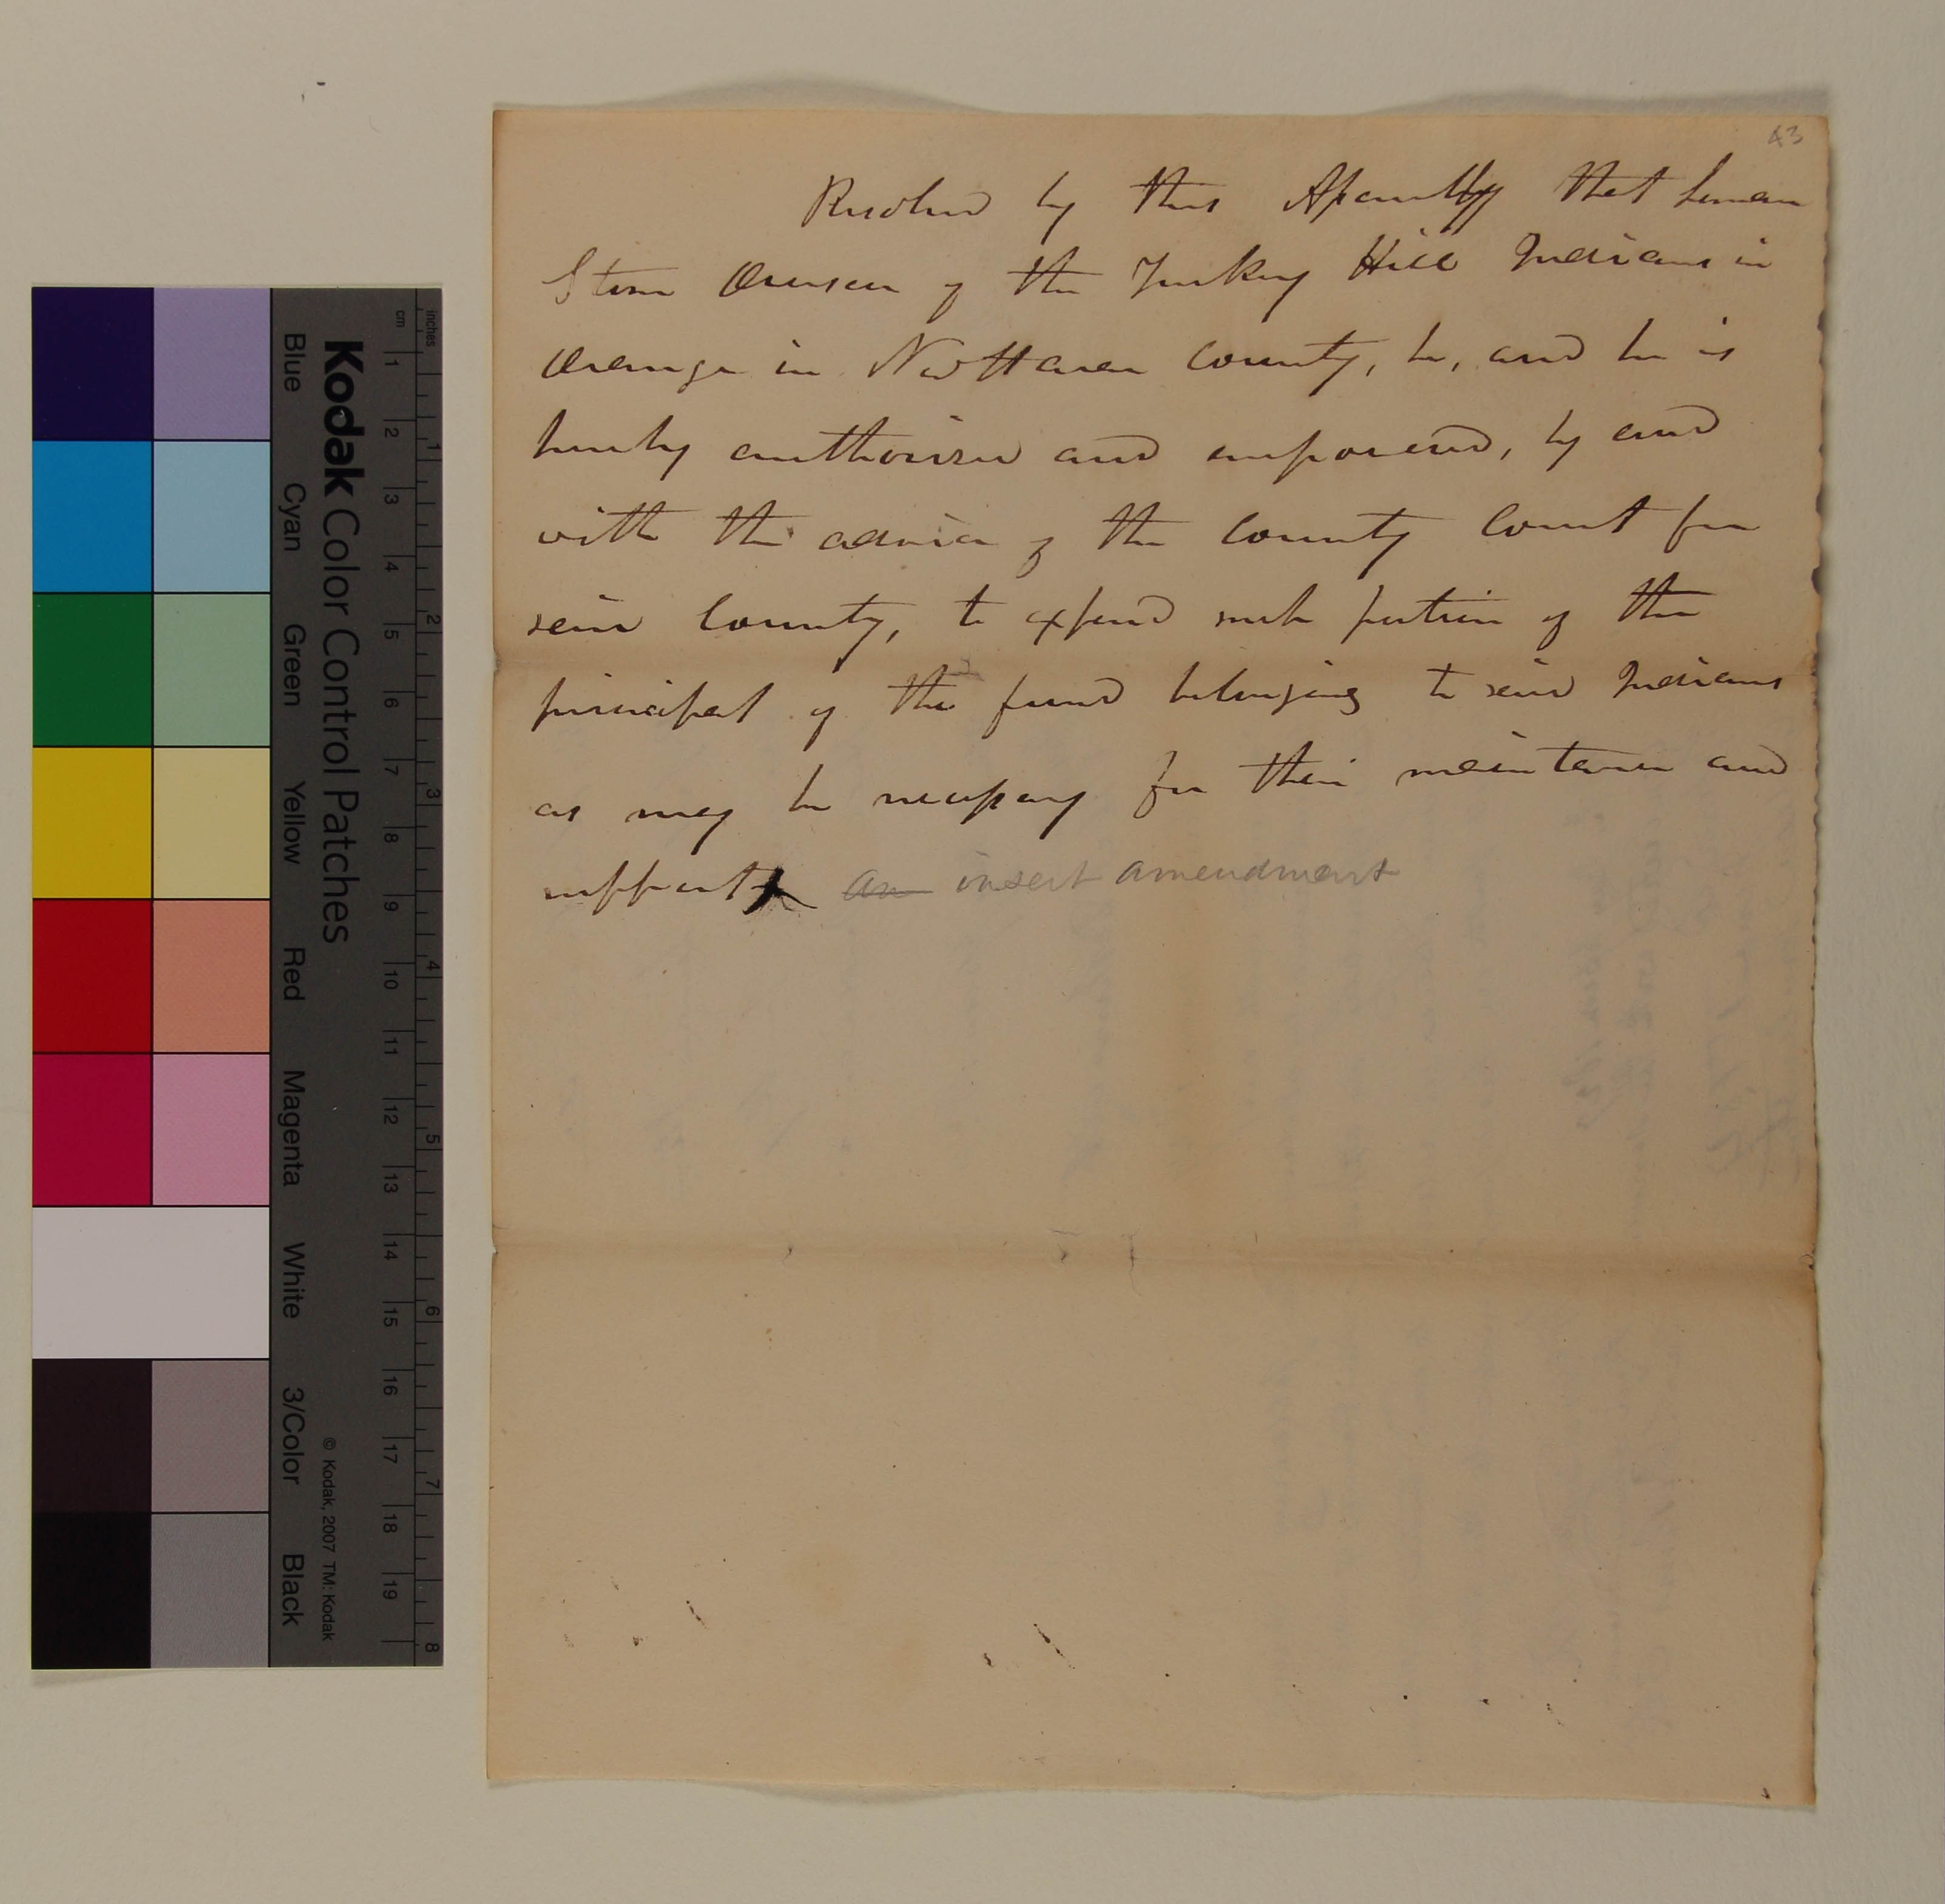 43
Resolved by this Assembly that Leman
Stone Overseer of the Turkey Hill Indians in
Orange in New Haven County, be, and he is
hereby authorised and empowered, by and
with the advice of the County Court for
said County, to expend such portion of the
principal of the fund belonging to said Indians
as may be necessary for their maintenance and
support
an insert amendment
Kodak Color Control Patches
Blue Cyan Green Yellow Red Magenta White 3/Color Black
© Kodak, 2007 TM: Kodak
cm 1 2 3 4 5 6 7 8 9 10 11 12 13 14 15 16 17 18 19
inches 1 2 3 4 5 6 7 8